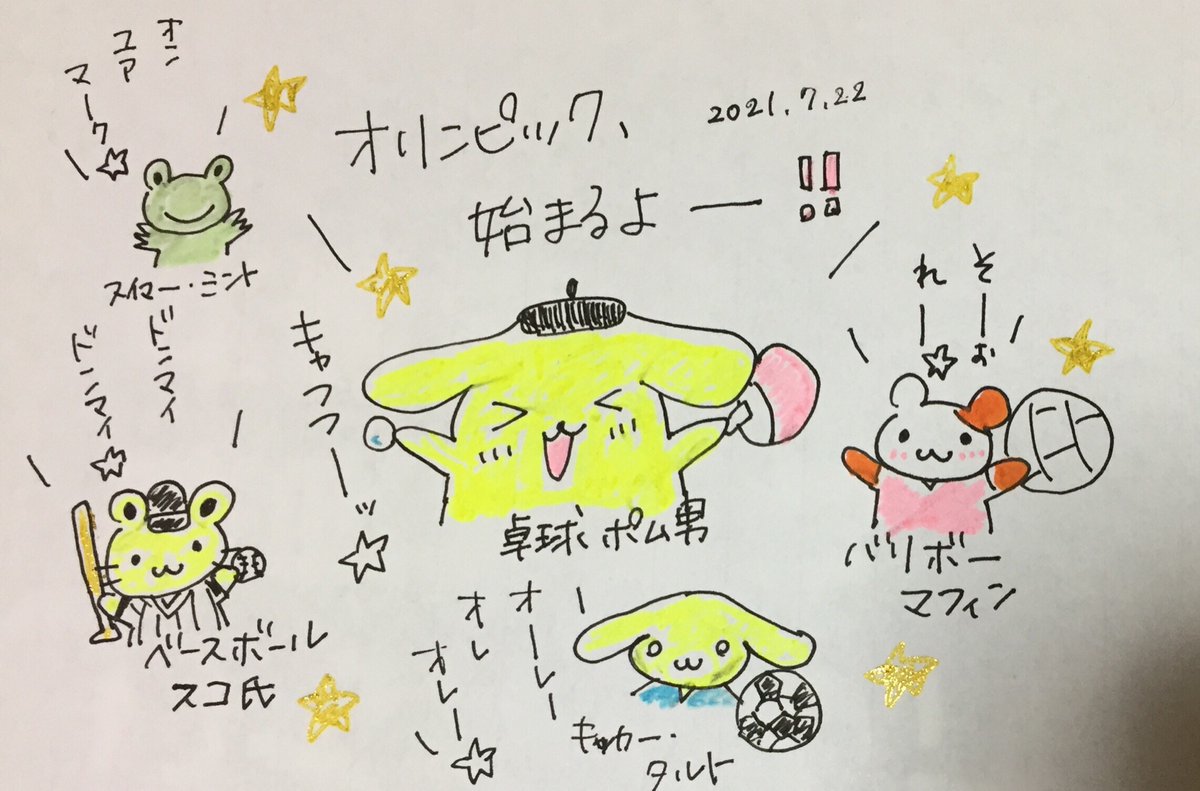 オリンピック、
始まるよー!!
2021.7.22
オン
ユア
マーク☆
スイマー・ミント
ドンマイ
ドンマイ☆
ベースボール
スコ氏
キャフフーッ☆
卓球ポム男
そーぉ
れー☆
バリボー
マフィン
オーレー
オレ
オレー☆
キッカー・
タルト